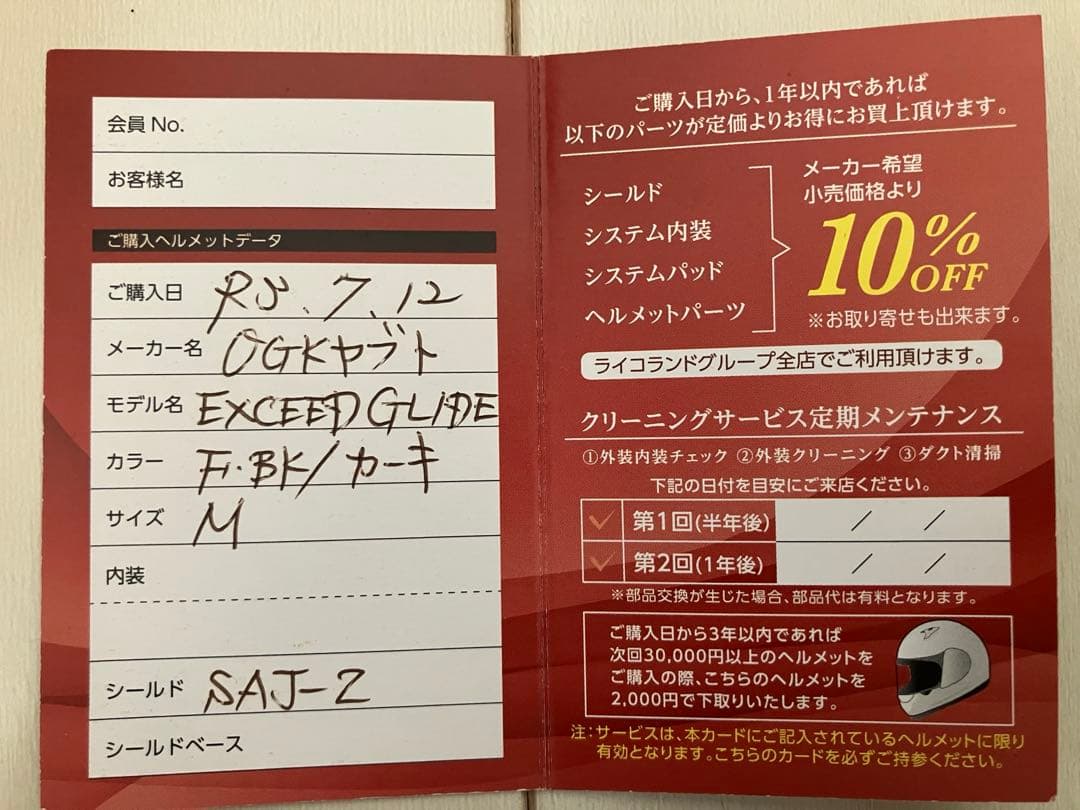 会員No.
お客様名
ご購入ヘルメットデータ
ご購入日 R5.7.12
メーカー名 OGKヤブト
モデル名 EXCEED GLIDE
カラー F・BK/カーキ
サイズ M
内装
シールド SAJ-2
シールドベース
ご購入日から、1年以内であれば
以下のパーツが定価よりお得にお買上頂けます。
シールド
システム内装
システムパッド
ヘルメットパーツ
メーカー希望
小売価格より
10%
OFF
※お取り寄せも出来ます。
ライコランドグループ全店でご利用頂けます。
クリーニングサービス定期メンテナンス
①外装内装チェック ②外装クリーニング ③ダクト清掃
下記の日付を目安にご来店ください。
第1回(半年後) / /
第2回(1年後) / /
※部品交換が生じた場合、部品代は有料となります。
ご購入日から3年以内であれば
次回30,000円以上のヘルメットを
ご購入の際、こちらのヘルメットを
2,000円で下取りいたします。
注:サービスは、本カードにご記入されているヘルメットに限り
有効となります。こちらのカードを必ずご持参ください。